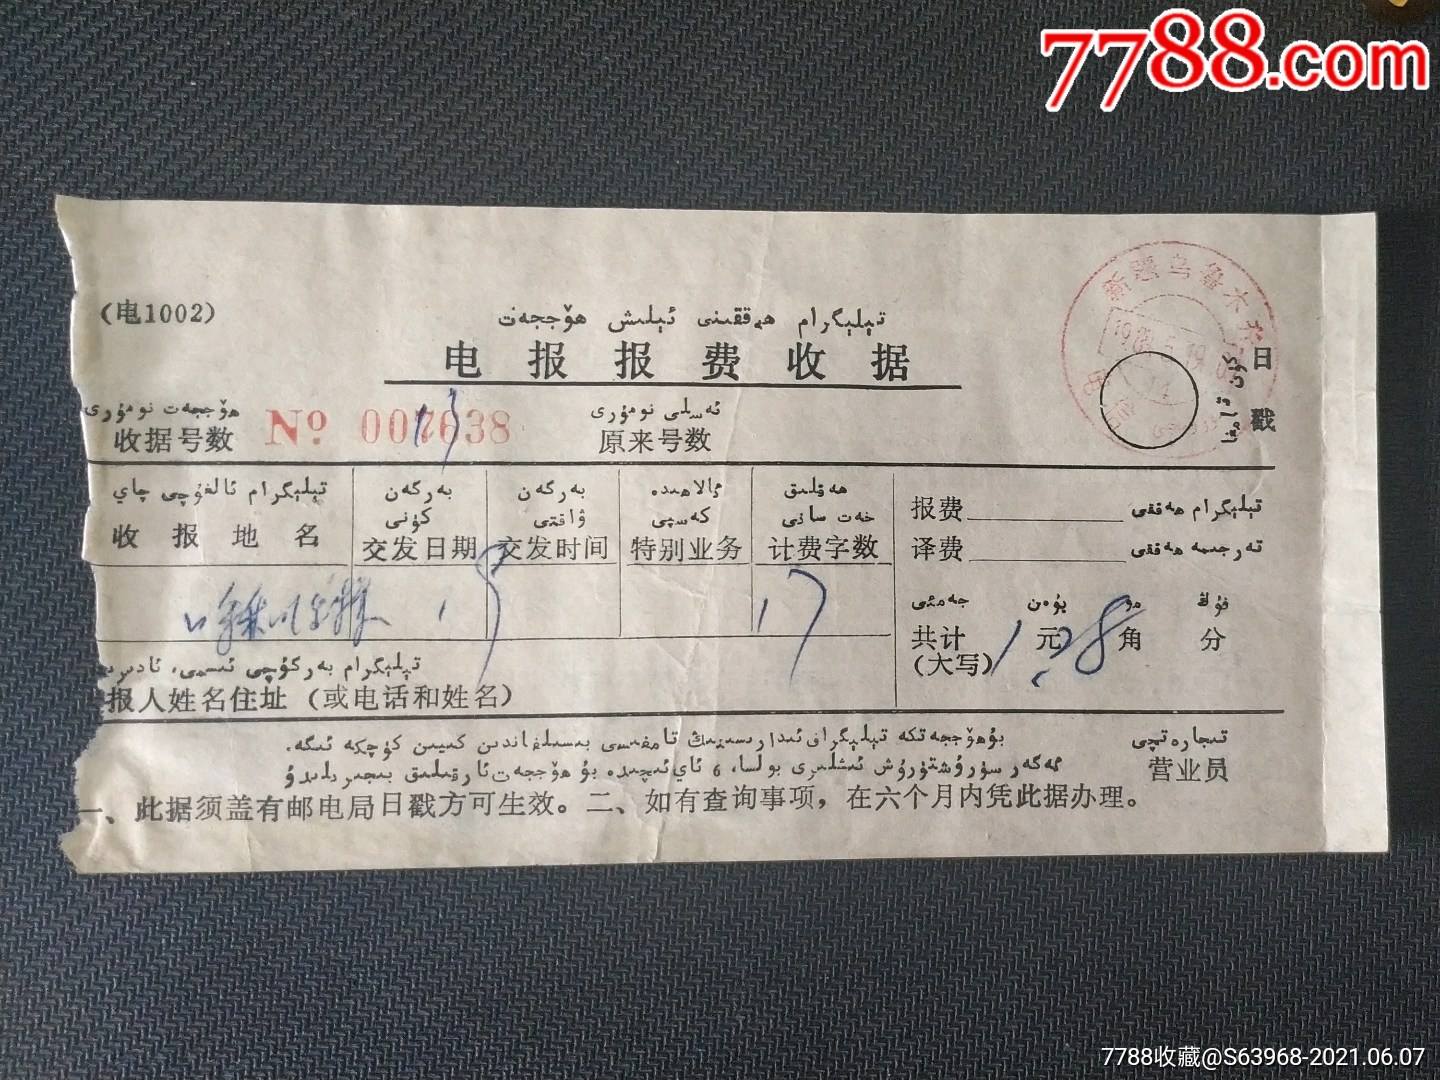 7788.com
(电1002)
تېلېگرام ھەققىنى ئېلىش ھۆججەت
电报报费收据
新疆乌鲁木齐
日戳
كۈن تامغا
ھۆججەت نومۇرى
ئەسلى نومۇرى
收据号数 № 007638
原来号数
تېلېگرام ئالغۇچى جاي
收报地名
بەرگەن كۈنى
交发日期
بەرگەن ۋاقتى
交发时间
ئالاھىدە كەسپى
特别业务
ھەقلىق خەت سانى
计费字数
报费 تېلېگرام ھەققى
译费 تەرجىمە ھەققى
17
جەمئى يۈەن مو فۇڭ
共计(大写) 1元28角 分
تېلېگرام بەرگۈچى ئىسمى، ئادىرىس
报人姓名住址（或电话和姓名）
بۇ ھۆججەتكە تېلېگراف ئىدارىسىنىڭ تامغىسى بېسىلغاندىن كېيىن كۈچكە ئىگە.
ئەگەر سۈرۈشتۈرۈش ئىشلىرى بولسا، 6 ئاي ئىچىدە بۇ ھۆججەت ئارقىلىق بېجىرىلىدۇ
تىجارەتچى
营业员
一、此据须盖有邮电局日戳方可生效。二、如有查询事项，在六个月内凭此据办理。
7788收藏@S63968-2021.06.07